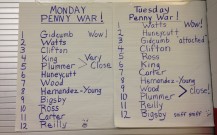 MONDAY
PENNY WAR!
1 Gidcumb Wow!
2 Watts
3 Clifton
4 King Very
5 Plummer > Close!
6 Huneycutt
7 Wood
8 Hernandez-Young
9 Bigsby
10 Ross
11 Carter
12 Reilly
Tuesday
Penny War!
1 Watts Wow!
2 Huneycutt
3 Gidcumb attached
4 Clifton
5 Ross
6 King
7 Carter
8 Hernandez-Young
9 Wood > Close!
10 Plummer
11 Reilly
12 Bigsby sniff sniff